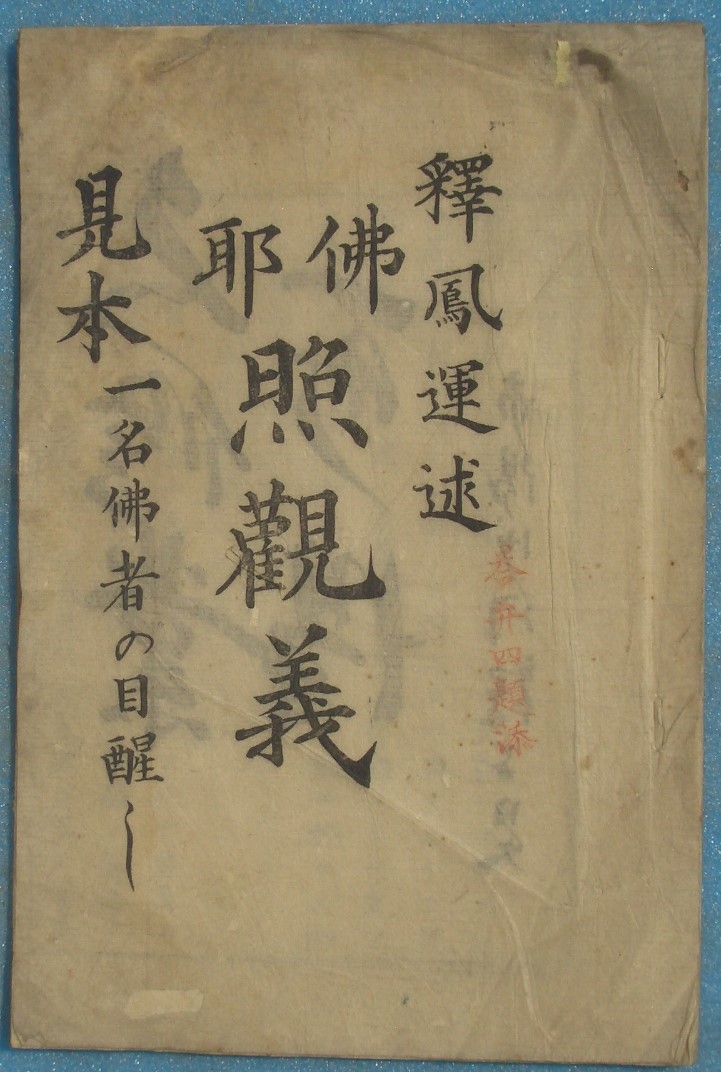 釋鳳運述
四題添
佛耶照觀義
見本一名佛者の目醒し